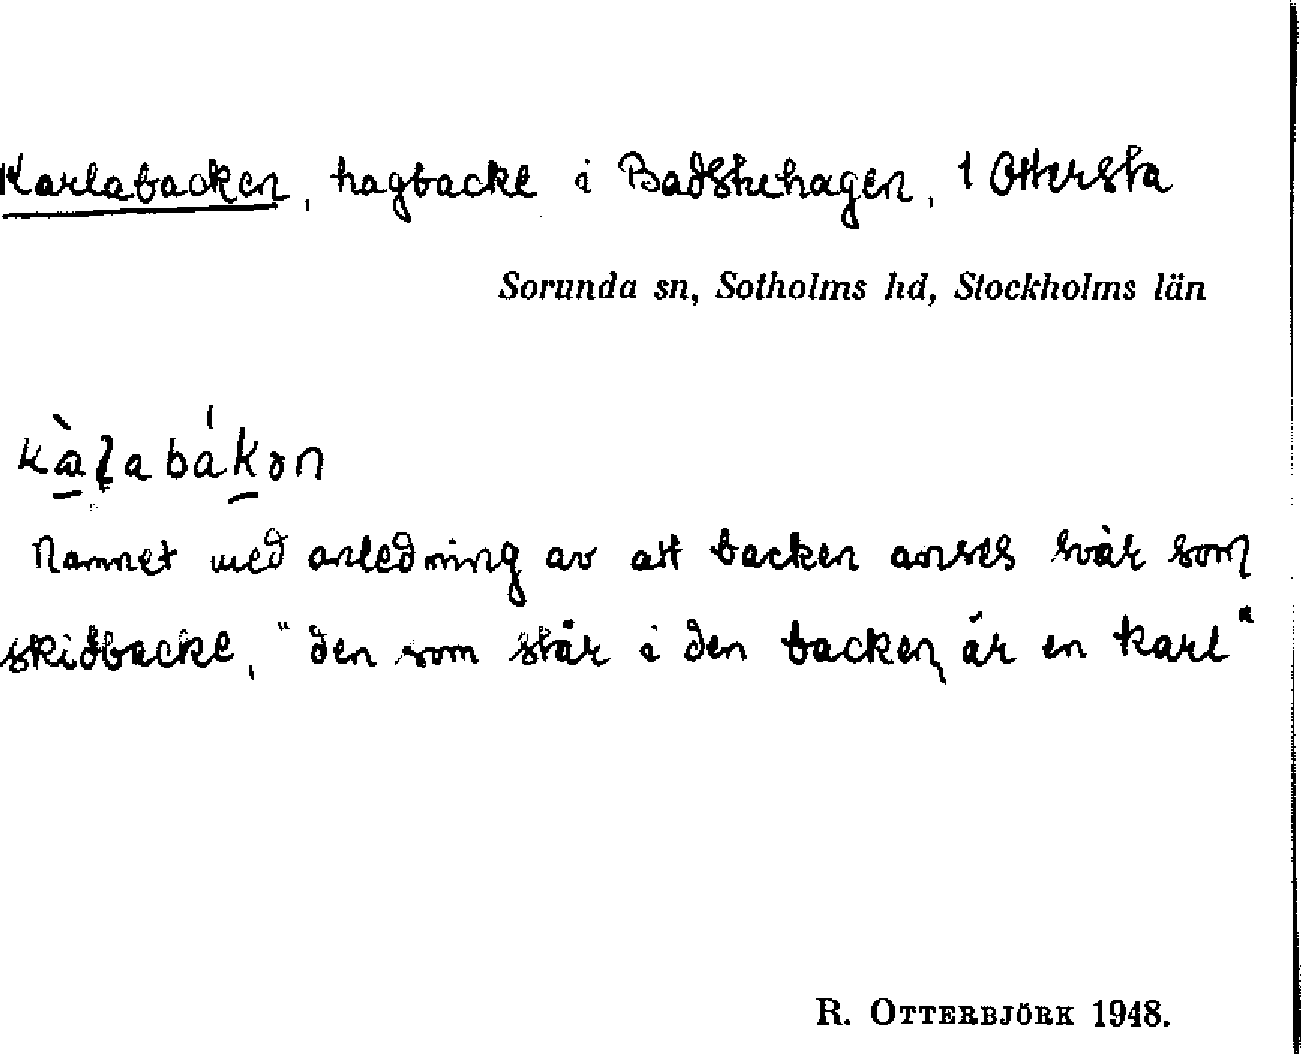 Karlabacken, hagbacke i Badstuhagen, 1 Ottersta
Sorunda sn, Sotholms hd, Stockholms län
Namnet med anledning av att backen anses svår som
skidbacke, "den som står i den backen, är en karl"
R. OTTERBJÖRK 1948.